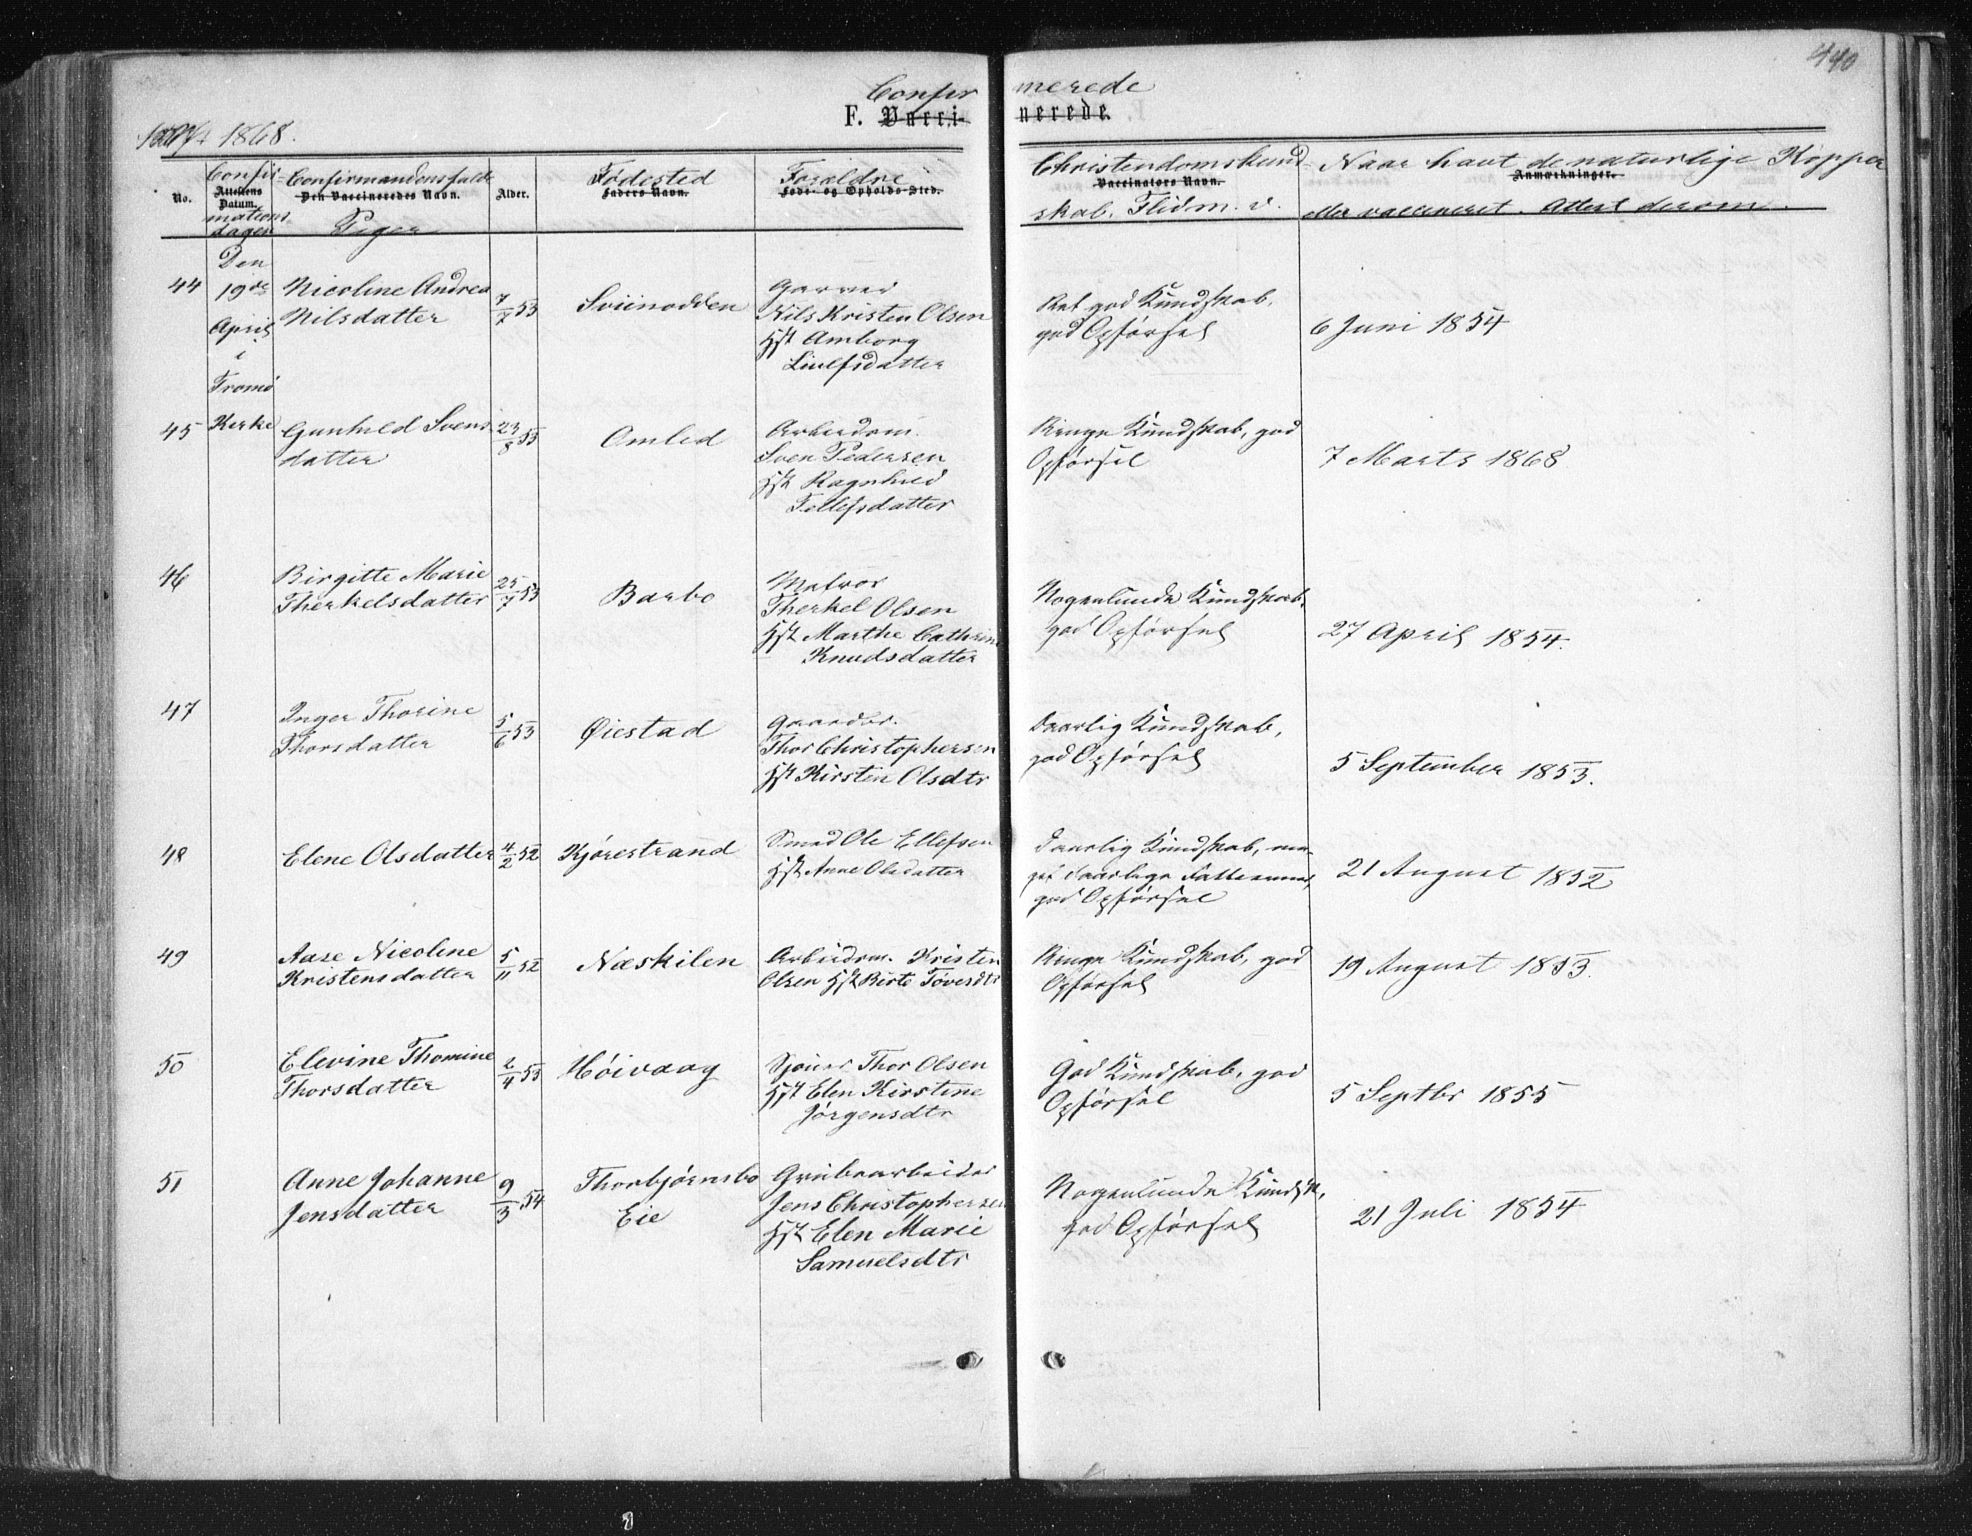 440
Confirmerede
F. Vaccinerede.
1868.
No. | Confirmationsdagen | Confirmandens fulde | Alder. | Fødested | Forældre | Christendomskund- | Naar havt de naturlige Kopper
Attestens Datum. | Den Vaccineredes Navn. | Faders Navn. | Føde- og Opholds-Sted. | Vaccinators Navn. | Anmærkninger.
Piger | skab. Flid m. v. | eller vaccineret. Attest derom.
Den
19de
April
i
Tromø
Kirke
44 Nicoline Andrea
Nilsdatter
7/7 53
Sviinodden
Garver
Nils Kristen Olsen
Hst Amborg
Liulfsdatter
Ret god Kundskab,
god Opførsel
6 Juni 1854
45 Gunhild Svens
datter
23/8 53
Omlid
Arbeidsm.
Sven Pedersen
Hst Ragnhild
Tellefsdatter
Ringe Kundskab, god
Opførsel
7 Marts 1868
46 Birgitte Marie
Therkelsdatter
25/7 53
Barbo
Matros
Therkel Olsen
Hst Marthe Cathrine
Knudsdatter
Nogenlunde Kundskab,
god Opførsel
27 April 1854.
47 Inger Thorine
Thorsdatter
5/6 53
Øiestad
Gaardbr.
Thor Christophersen
Hst Kirsten Olsdtr
Daarlig Kundskab,
god Opførsel
5 September 1853.
48 Elene Olsdatter
4/2 52
Kjørestrand
Smed Ole Ellefsen
Hst Anne Olsdatter
Daarlig Kundskab, me-
get daarlige Fatteevner,
god Opførsel
21 August 1852
49 Aase Nicoline
Kristensdatter
5/11 52
Næskilen
Arbeidsm. Kristen
Olsen Hst Birte Tøversdtr
Ringe Kundskab, god
Opførsel
19 August 1853.
50 Elevine Thomine
Thorsdatter
2/4 53
Høivaag
Thor Olsen
Hst Elen Kirstine
Jørgensdtr
God Kundskab, god
Opførsel
5 Septbr 1855
51 Anne Johanne
Jensdatter
9/3 54
Thorbjørnsbo
Eie
Grubearbeider
Jens Christophersen
Hst Elen Marie
Samuelsdtr
Nogenlunde Kundsk,
god Opførsel
21 Juli 1854